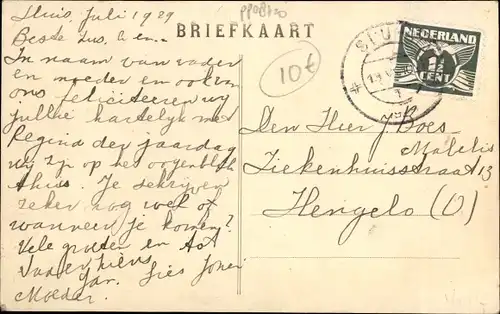 Sluis, Juli 1929
BRIEFKAART
Beste Zus, en
In naam van vader
en moeder en ook van
ons feliciteeren wij
jullie hartelijk met
Regina der jaardag
wij zijn op het oogenblik
thuis. Je schrijven
zeker nog wel of
wanneer je komen?
Vele groeten en
Vader
Jan. Lies
Moeder
10€
SLUIS
NEDERLAND
1½
CENT
Den Heer J Boes
Ziekenhuisstraat 13
Hengelo (O)